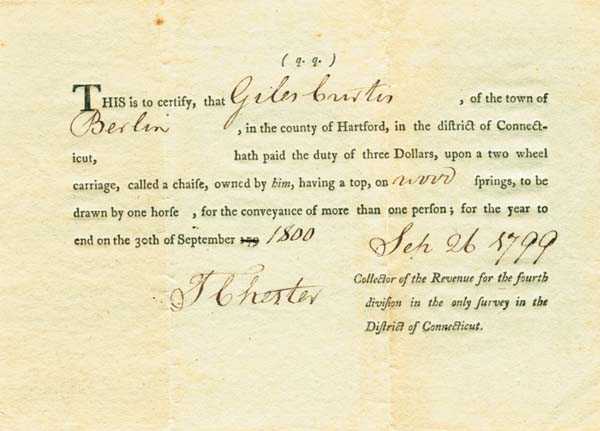 ( q. q. )
THIS is to certify, that Giles Curtis , of the town of
Berlin , in the county of Hartford, in the diſtrict of Connect-
icut, hath paid the duty of three Dollars, upon a two wheel
carriage, called a chaiſe, owned by him, having a top, on wood ſprings, to be
drawn by one horſe , for the conveyance of more than one perſon ; for the year to
end on the 30th of September 179 1800
Sep 26 1799
J Chester
Collector of the Revenue for the fourth
diviſion in the only ſurvey in the
Diſtrict of Connecticut.